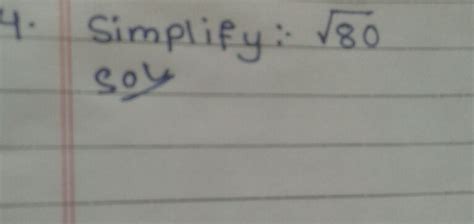 4. Simplify:- √80
Sol